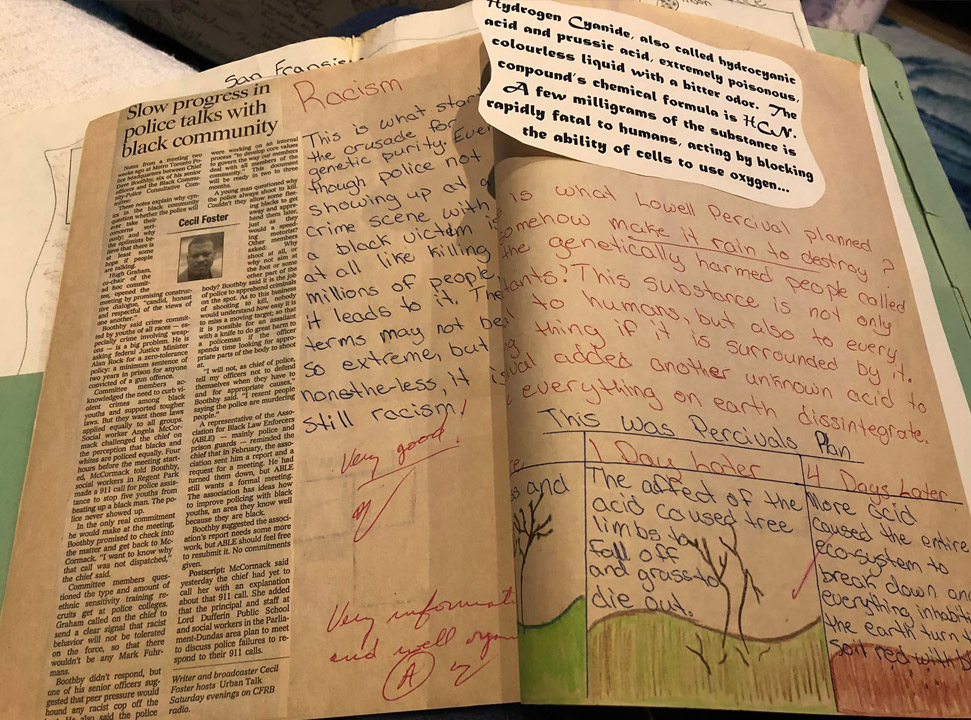 San Fransis
Slow progress in
police talks with
black community
Notes from a meeting two
weeks ago at Metro Toronto Po-
lice headquarters between Chief
Dave Boothby, six of his senior
officers and the Black Commu-
nity-Police Consultative Com-
mittee:
These notes explain why cyn-
ics in the black community
question whether the police will
ever take their
concerns seri-
ously; and why
the optimists be-
lieve that there is
at least some
hope if people
are talking.
Hugh Graham,
co-chair of the
ad hoc commit-
tee, opened the
meeting by promising construc-
tive dialogue, "candid, honest
and respectful of the views of
one another."
Boothby said crime commit-
ted by youths of all races — es-
pecially crime involving weap-
ons — is a big problem. He is
asking federal Justice Minister
Alan Rock for a zero-tolerance
policy: a minimum sentence of
two years in prison for anyone
convicted of a gun offence.
Committee members ac-
knowledged the need to curb vi-
olent crimes among black
youths and supported tougher
laws. But they want these laws
applied equally to all groups.
Social worker Angela McCor-
mack challenged the chief on
the perception that blacks and
whites are policed equally. Four
hours before the meeting start-
ed, McCormack told Boothby,
social workers in Regent Park
made a 911 call for police assis-
tance to stop five youths from
beating up a black man. The po-
lice never showed up.
In the only real commitment
he would make at the meeting,
Boothby promised to check into
the matter and get back to Mc-
Cormack. "I want to know why
that call was not dispatched,"
the chief said.
Committee members ques-
tioned the type and amount of
ethnic sensitivity training re-
cruits get at police colleges.
Graham called on the chief to
send a clear signal that racist
behavior will not be tolerated
on the force, so that there
wouldn't be any Mark Fuhr-
mans.
Boothby didn't respond, but
one of his senior officers sug-
gested that peer pressure would
hound any racist cop off the
He also said the police
were working on an internal
process "to develop core values
to govern the way our members
deal with all segments of the
community." This document
will be ready in two to three
months.
A young man questioned why
the police always shoot to kill.
Couldn't they allow some flee-
ing blacks to get
away and appre-
hend them later,
just as they
would a speed-
ing motorist?
Other members
asked: Why
shoot at all, or
why not aim at
the foot or some
other part of the
Cecil Foster
body? Boothby said it is the job
of police to apprehend criminals
on the spot. As to this business
of shooting to kill, nobody
would understand how easy it is
to miss a moving target; so that
it is possible for an assailant
with a knife to do great harm to
a policeman if the officer
spends time looking for appro-
priate parts of the body to shoot
at.
"I will not, as chief of police,
tell my officers not to defend
themselves when they have to
and for appropriate causes,"
Boothby said. "I resent people
saying the police are murdering
people."
A representative of the Asso-
ciation for Black Law Enforcers
(ABLE) — mainly police and
prison guards — reminded the
chief that in February, the asso-
ciation sent him a report and a
request for a meeting. He had
turned them down, but ABLE
still wants a formal meeting.
The association has ideas how
to improve policing with black
youths, an area they know well
because they are black.
Boothby suggested the associ-
ation's report needs some more
work, but ABLE should feel free
to resubmit it. No commitments
given.
Postscript: McCormack said
yesterday the chief had yet to
call her with an explanation
about that 911 call. She added
that the principal and staff at
Lord Dufferin Public School
and social workers in the Parlia-
ment-Dundas area plan to meet
to discuss police failures to re-
spond to their 911 calls.
Writer and broadcaster Cecil
Foster hosts Urban Talk
Saturday evenings on CFRB
radio.
Racism
This is what star
the crusade for
genetic purity. Even
though police not
showing up at a
crime scene with
a black victim is
at all like killing
millions of people,
it leads to it. The
terms may not be
so extreme, but
nonetheless, it is
still racism!
Very good!
Very informat
and well organ
A
Hydrogen Cyanide, also called hydrocyanic
acid and prussic acid, extremely poisonous,
colourless liquid with a bitter odor. The
conpound's chemical formula is HCN.
A few milligrams of the substance is
rapidly fatal to humans, acting by blocking
the ability of cells to use oxygen...
is what Lowell Percival planned
omehow make it rain to destroy?
the genetically harmed people called
tants! This substance is not only
to humans, but also to every
thing if it is surrounded by it.
added another unknown acid to
everything on earth dissintegrate.
This was Percivals Plan
1 Day Later
The affect of the
acid caused tree
limbs to
fall off
and grass to
die out.
4 Days Later
More acid
caused the entire
eco-system to
break down and
everything inhabit
the earth turn t
soil red with b
s and